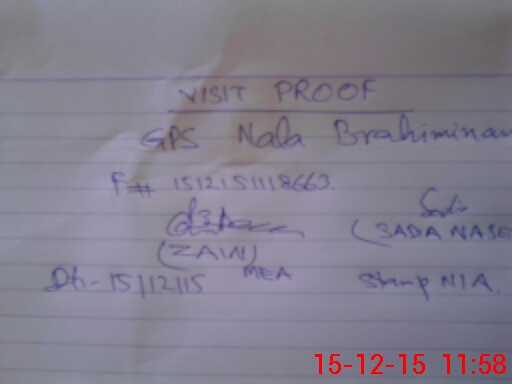 VISIT PROOF
GPS Nala Brahiminan
F# 1512151118663
(ZAIN) (SADA NASE
MEA
Dt:- 15/12/15 Stamp N/A.
15-12-15 11:58